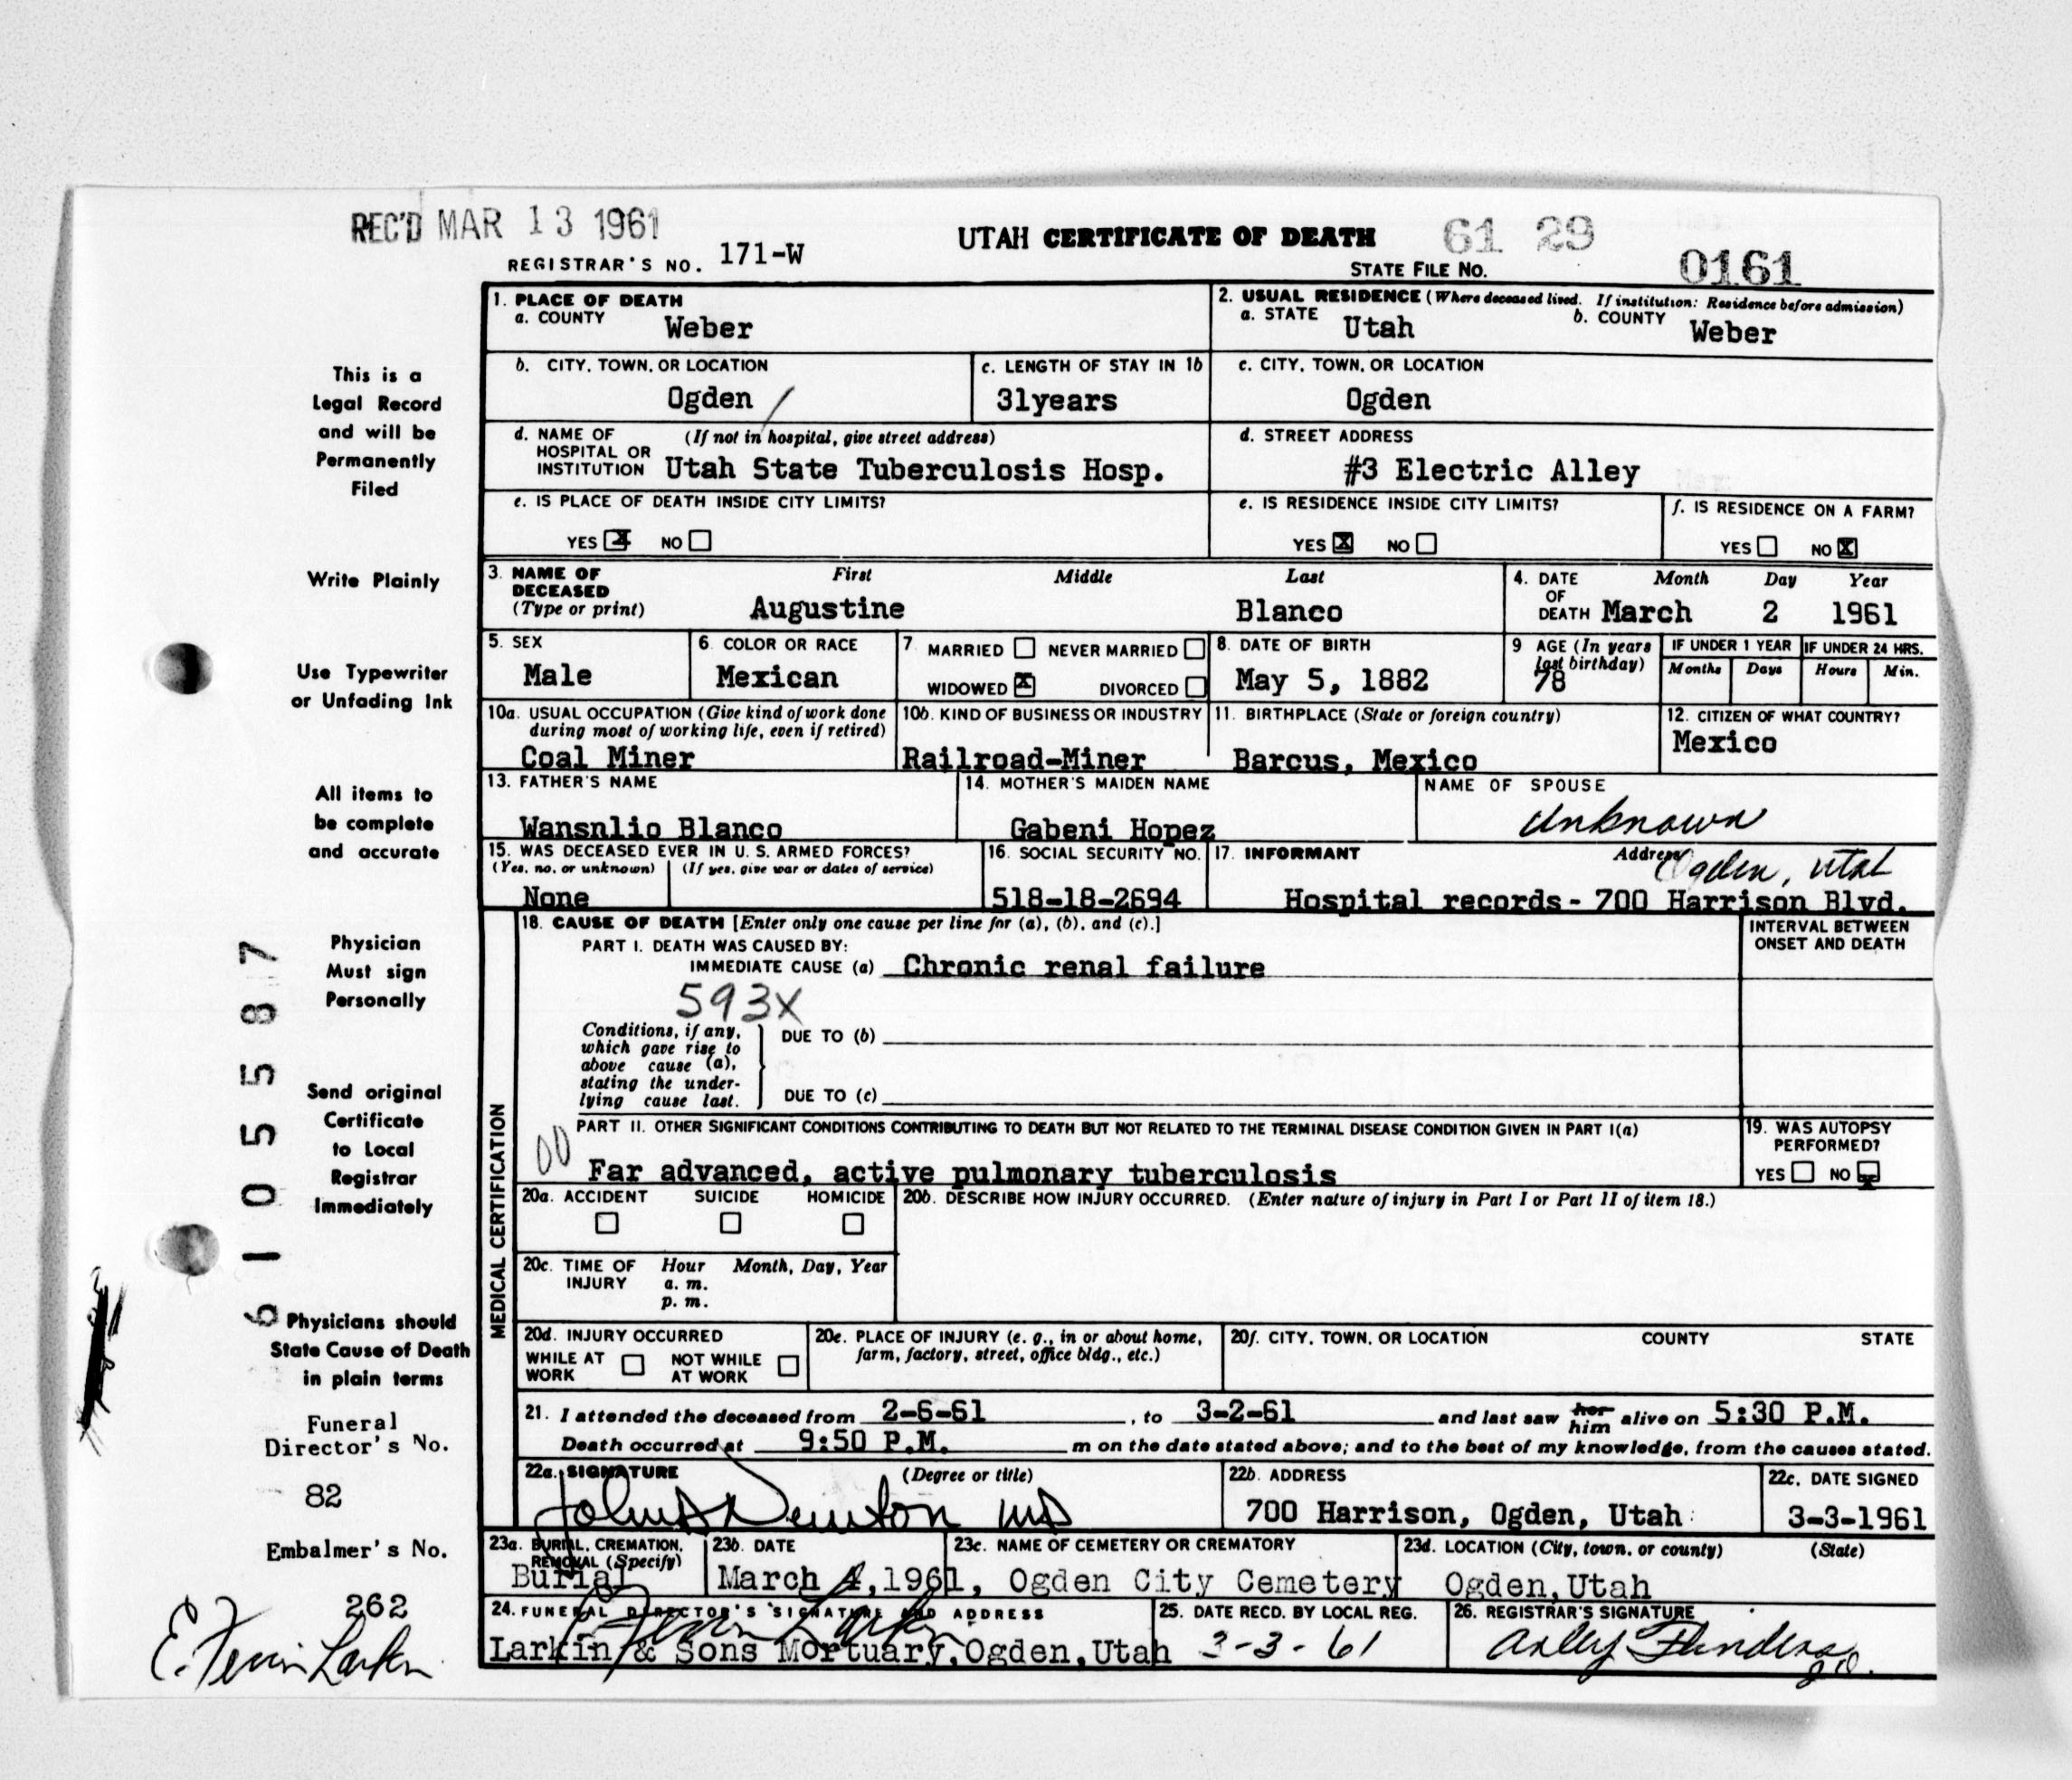 REC'D MAR 13 1961
UTAH CERTIFICATE OF DEATH 61 29
REGISTRAR'S NO. 171-W
STATE FILE NO. 0161
1. PLACE OF DEATH
a. COUNTY Weber
2. USUAL RESIDENCE (Where deceased lived. If institution: Residence before admission)
a. STATE Utah b. COUNTY Weber
b. CITY, TOWN, OR LOCATION
Ogden
c. LENGTH OF STAY IN 1b
31years
c. CITY, TOWN, OR LOCATION
Ogden
d. NAME OF HOSPITAL OR INSTITUTION (If not in hospital, give street address)
Utah State Tuberculosis Hosp.
d. STREET ADDRESS
#3 Electric Alley
e. IS PLACE OF DEATH INSIDE CITY LIMITS?
YES X NO
e. IS RESIDENCE INSIDE CITY LIMITS?
YES X NO
f. IS RESIDENCE ON A FARM?
YES NO X
3. NAME OF DECEASED (Type or print)
First Middle Last
Augustine Blanco
4. DATE OF DEATH Month Day Year
March 2 1961
5. SEX
Male
6. COLOR OR RACE
Mexican
7. MARRIED NEVER MARRIED
WIDOWED X DIVORCED
8. DATE OF BIRTH
May 5, 1882
9 AGE (In years last birthday)
78
IF UNDER 1 YEAR
Months Days
IF UNDER 24 HRS.
Hours Min.
10a. USUAL OCCUPATION (Give kind of work done during most of working life, even if retired)
Coal Miner
10b. KIND OF BUSINESS OR INDUSTRY
Railroad-Miner
11. BIRTHPLACE (State or foreign country)
Barcus, Mexico
12. CITIZEN OF WHAT COUNTRY?
Mexico
13. FATHER'S NAME
Wansnlio Blanco
14. MOTHER'S MAIDEN NAME
Gabeni Hopez
NAME OF SPOUSE
Unknown
15. WAS DECEASED EVER IN U. S. ARMED FORCES?
(Yes, no, or unknown) (If yes, give war or dates of service)
None
16. SOCIAL SECURITY NO.
518-18-2694
17. INFORMANT Address Ogden, Utah
Hospital records - 700 Harrison Blvd.
18. CAUSE OF DEATH [Enter only one cause per line for (a), (b), and (c).]
INTERVAL BETWEEN ONSET AND DEATH
PART I. DEATH WAS CAUSED BY:
IMMEDIATE CAUSE (a) Chronic renal failure
593X
Conditions, if any, which gave rise to above cause (a), stating the underlying cause last.
DUE TO (b)
DUE TO (c)
PART II. OTHER SIGNIFICANT CONDITIONS CONTRIBUTING TO DEATH BUT NOT RELATED TO THE TERMINAL DISEASE CONDITION GIVEN IN PART I(a)
00 Far advanced, active pulmonary tuberculosis
19. WAS AUTOPSY PERFORMED?
YES NO X
20a. ACCIDENT SUICIDE HOMICIDE
20b. DESCRIBE HOW INJURY OCCURRED. (Enter nature of injury in Part I or Part II of item 18.)
20c. TIME OF INJURY Hour Month, Day, Year
a. m.
p. m.
20d. INJURY OCCURRED
WHILE AT WORK NOT WHILE AT WORK
20e. PLACE OF INJURY (e. g., in or about home, farm, factory, street, office bldg., etc.)
20f. CITY, TOWN, OR LOCATION COUNTY STATE
21. I attended the deceased from 2-6-61, to 3-2-61 and last saw her him alive on 5:30 P.M.
Death occurred at 9:50 P.M. m on the date stated above; and to the best of my knowledge, from the causes stated.
22a. SIGNATURE (Degree or title)
Newton MD
22b. ADDRESS
700 Harrison, Ogden, Utah
22c. DATE SIGNED
3-3-1961
23a. BURIAL, CREMATION, REMOVAL (Specify)
Burial
23b. DATE
March 4, 1961,
23c. NAME OF CEMETERY OR CREMATORY
Ogden City Cemetery
23d. LOCATION (City, town, or county) (State)
Ogden, Utah
24. FUNERAL DIRECTOR'S SIGNATURE AND ADDRESS
Larkin & Sons Mortuary, Ogden, Utah
25. DATE RECD. BY LOCAL REG.
3-3-61
26. REGISTRAR'S SIGNATURE
MEDICAL CERTIFICATION
This is a
Legal Record
and will be
Permanently
Filed
Write Plainly
Use Typewriter
or Unfading Ink
All items to
be complete
and accurate
Physician
Must sign
Personally
Send original
Certificate
to Local
Registrar
Immediately
Physicians should
State Cause of Death
in plain terms
Funeral
Director's No.
82
Embalmer's No.
262
Larkin
61 05587